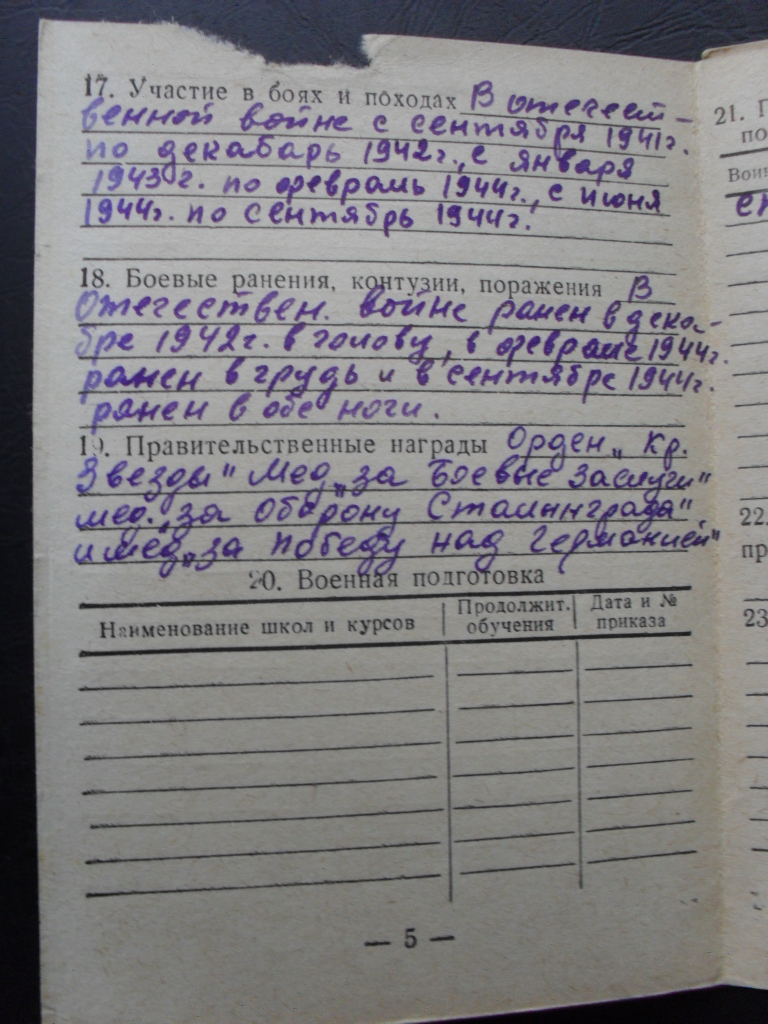 17. Участие в боях и походах В отечест-
венной войне с сентября 1941г.
по декабарь 1942г., с января
1943г. по февраль 1944г., с июня
1944г. по сентябрь 1944г.
18. Боевые ранения, контузии, поражения В
Отечествен. войне ранен в дека-
бре 1942г. в голову, в феврале 1944г.
ранен в грудь и в сентябре 1944г.
ранен в обе ноги.
19. Правительственные награды Орден „Кр.
Звезды" Мед. „за Боевые Заслуги"
мед. „за Оборону Сталинграда"
и мед „за победу над Германией"
20. Военная подготовка
Наименование школ и курсов
Продолжит.
обучения
Дата и №
приказа
— 5 —
21.
по
22.
пр
23